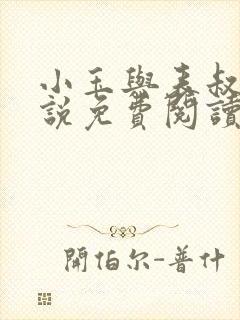 小玉與表叔
說免費閱讀
開伯尔-普什